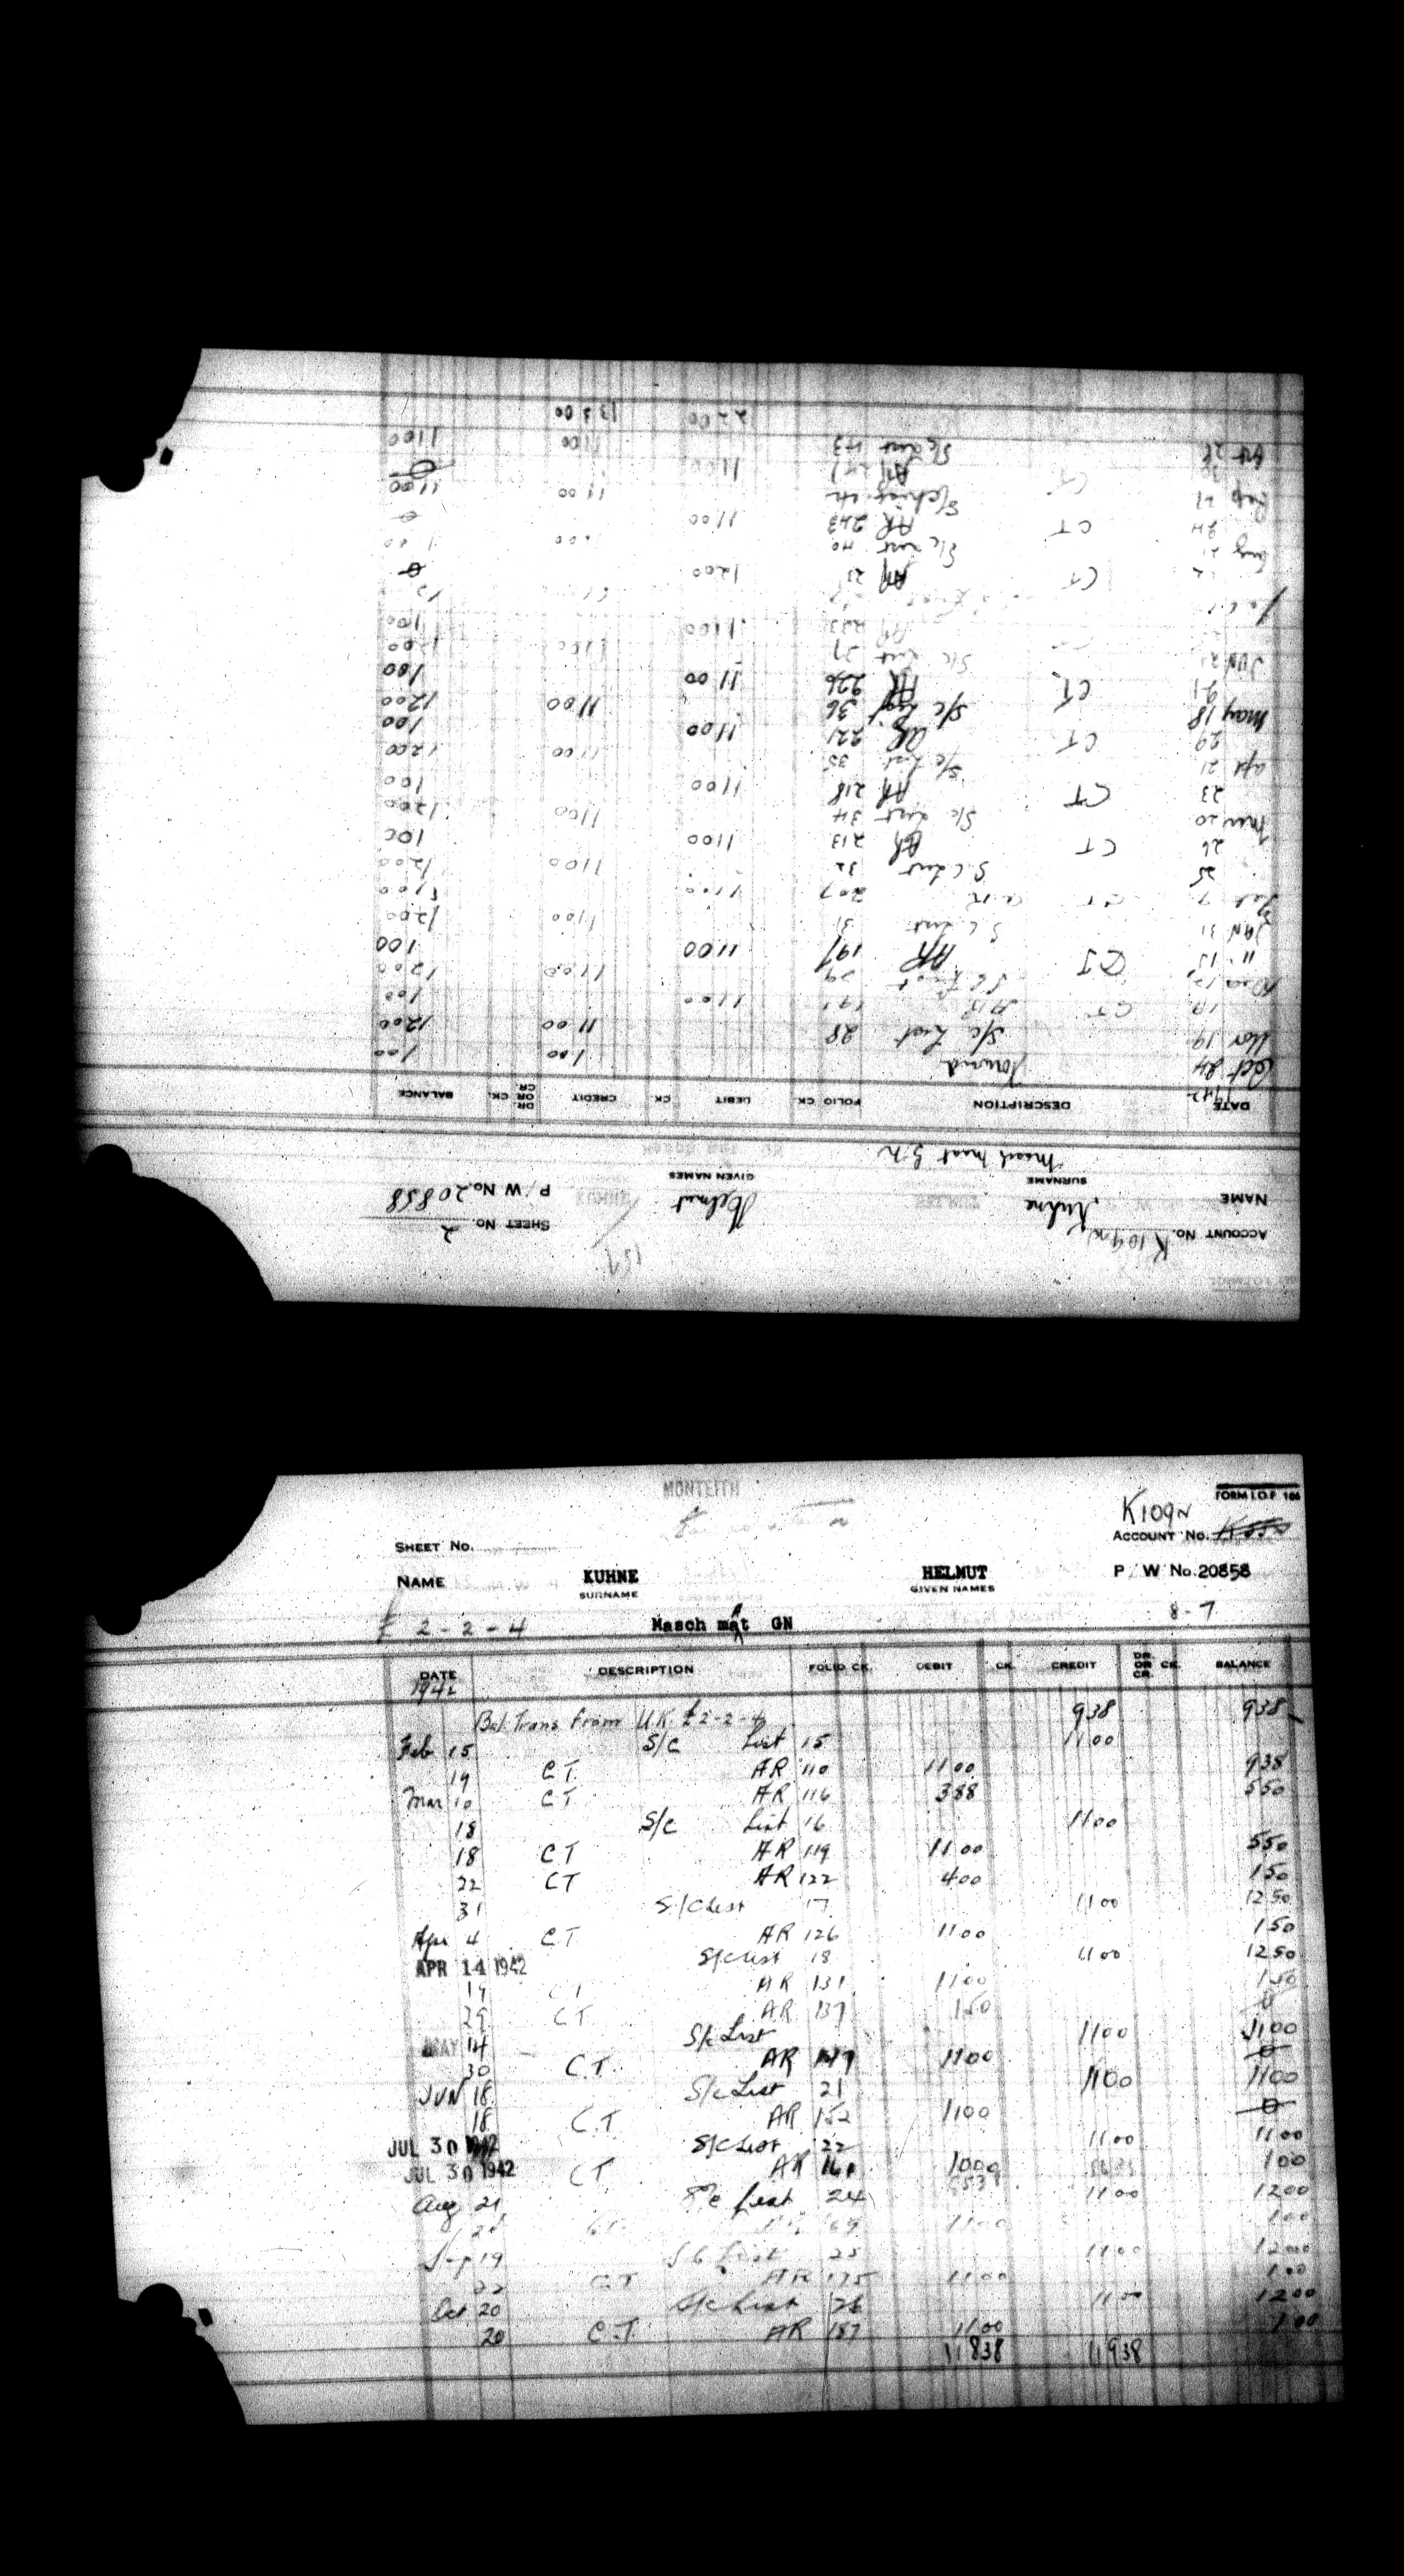 MONTEITH
FORM I.O.F. 106
K109N
SHEET No. ACCOUNT No. K550
NAME KUHNE HELMUT P/W No. 20858
SURNAME GIVEN NAMES
£ 2-2-4 Masch mat GN 8-7
DATE DESCRIPTION FOLIO CK. DEBIT CK. CREDIT DR. OR CR. CK. BALANCE
1942
Bal. Trans from U.K. £2-2-4 938 938
Feb 15 S/C List 15 1100
19 C.T. AR 110 1100 938
Mar 10 C T AR 116 388 550
18 S/C List 16 1100
18 C T AR 119 1100 550
22 C T AR 122 400 150
31 S/C List 17 1100 1250
Apr 4 C T AR 126 1100 150
APR 14 1942 S/C List 18 1100 1250
19 C T AR 131 1100 150
29 C T. AR 137 150 0
MAY 14 S/c List 1100 1100
30 C.T. AR 1100 0
JUN 18 S/c List 21 1100 1100
18 C.T. AR 152 1100 0
JUL 30 1942 S/C List 22 1100 1100
JUL 30 1942 C T AR 161 1000 100
Aug 21 S/c List 24 1100 1200
1100 100
Sep 19 S C List 25 1100 1200
22 C T AR 175 1100 100
Oct 20 S/c List 26 1100 1200
20 C.T. AR 187 1100 100
11838 11938
ACCOUNT No. K109N SHEET No. 2
NAME Kuhne Helmut P/W No. 20858
SURNAME GIVEN NAMES
Masch maat G.N
DATE DESCRIPTION FOLIO CK. DEBIT CK. CREDIT DR. OR CR. CK. BALANCE
1942
Oct 24 Forward 100 100
Nov 19 S/c List 28 1100 1200
19 C T 191 1100 100
Dec 12 S C List 29 1100 1200
" 15 C T AR 197 1100 100
JAN 31 S.C. List 31 1100 1200
Feb 7 C T 207 1100 100
25 S.C List 32 1100 1200
26 C T AR 213 1100 100
Mar 20 S/c List 34 1100 1200
23 C T AR 218 1100 100
Apr 21 S/c List 35 1100 1200
29 C T AR 221 1100 100
May 18 S/c List 36 1100 1200
21 C T AR 226 1100 100
JUN 21 S/c List 37 1100 1200
AR 233 1100 100
C T AR 1200 0
Aug 21 S/c List 40
24 C T AR 243 1100 0
Sep 21 S/c List 1100 1100
C T AR 1100 0
Oct 26 S/c List 43 1100 1100
2200 13200